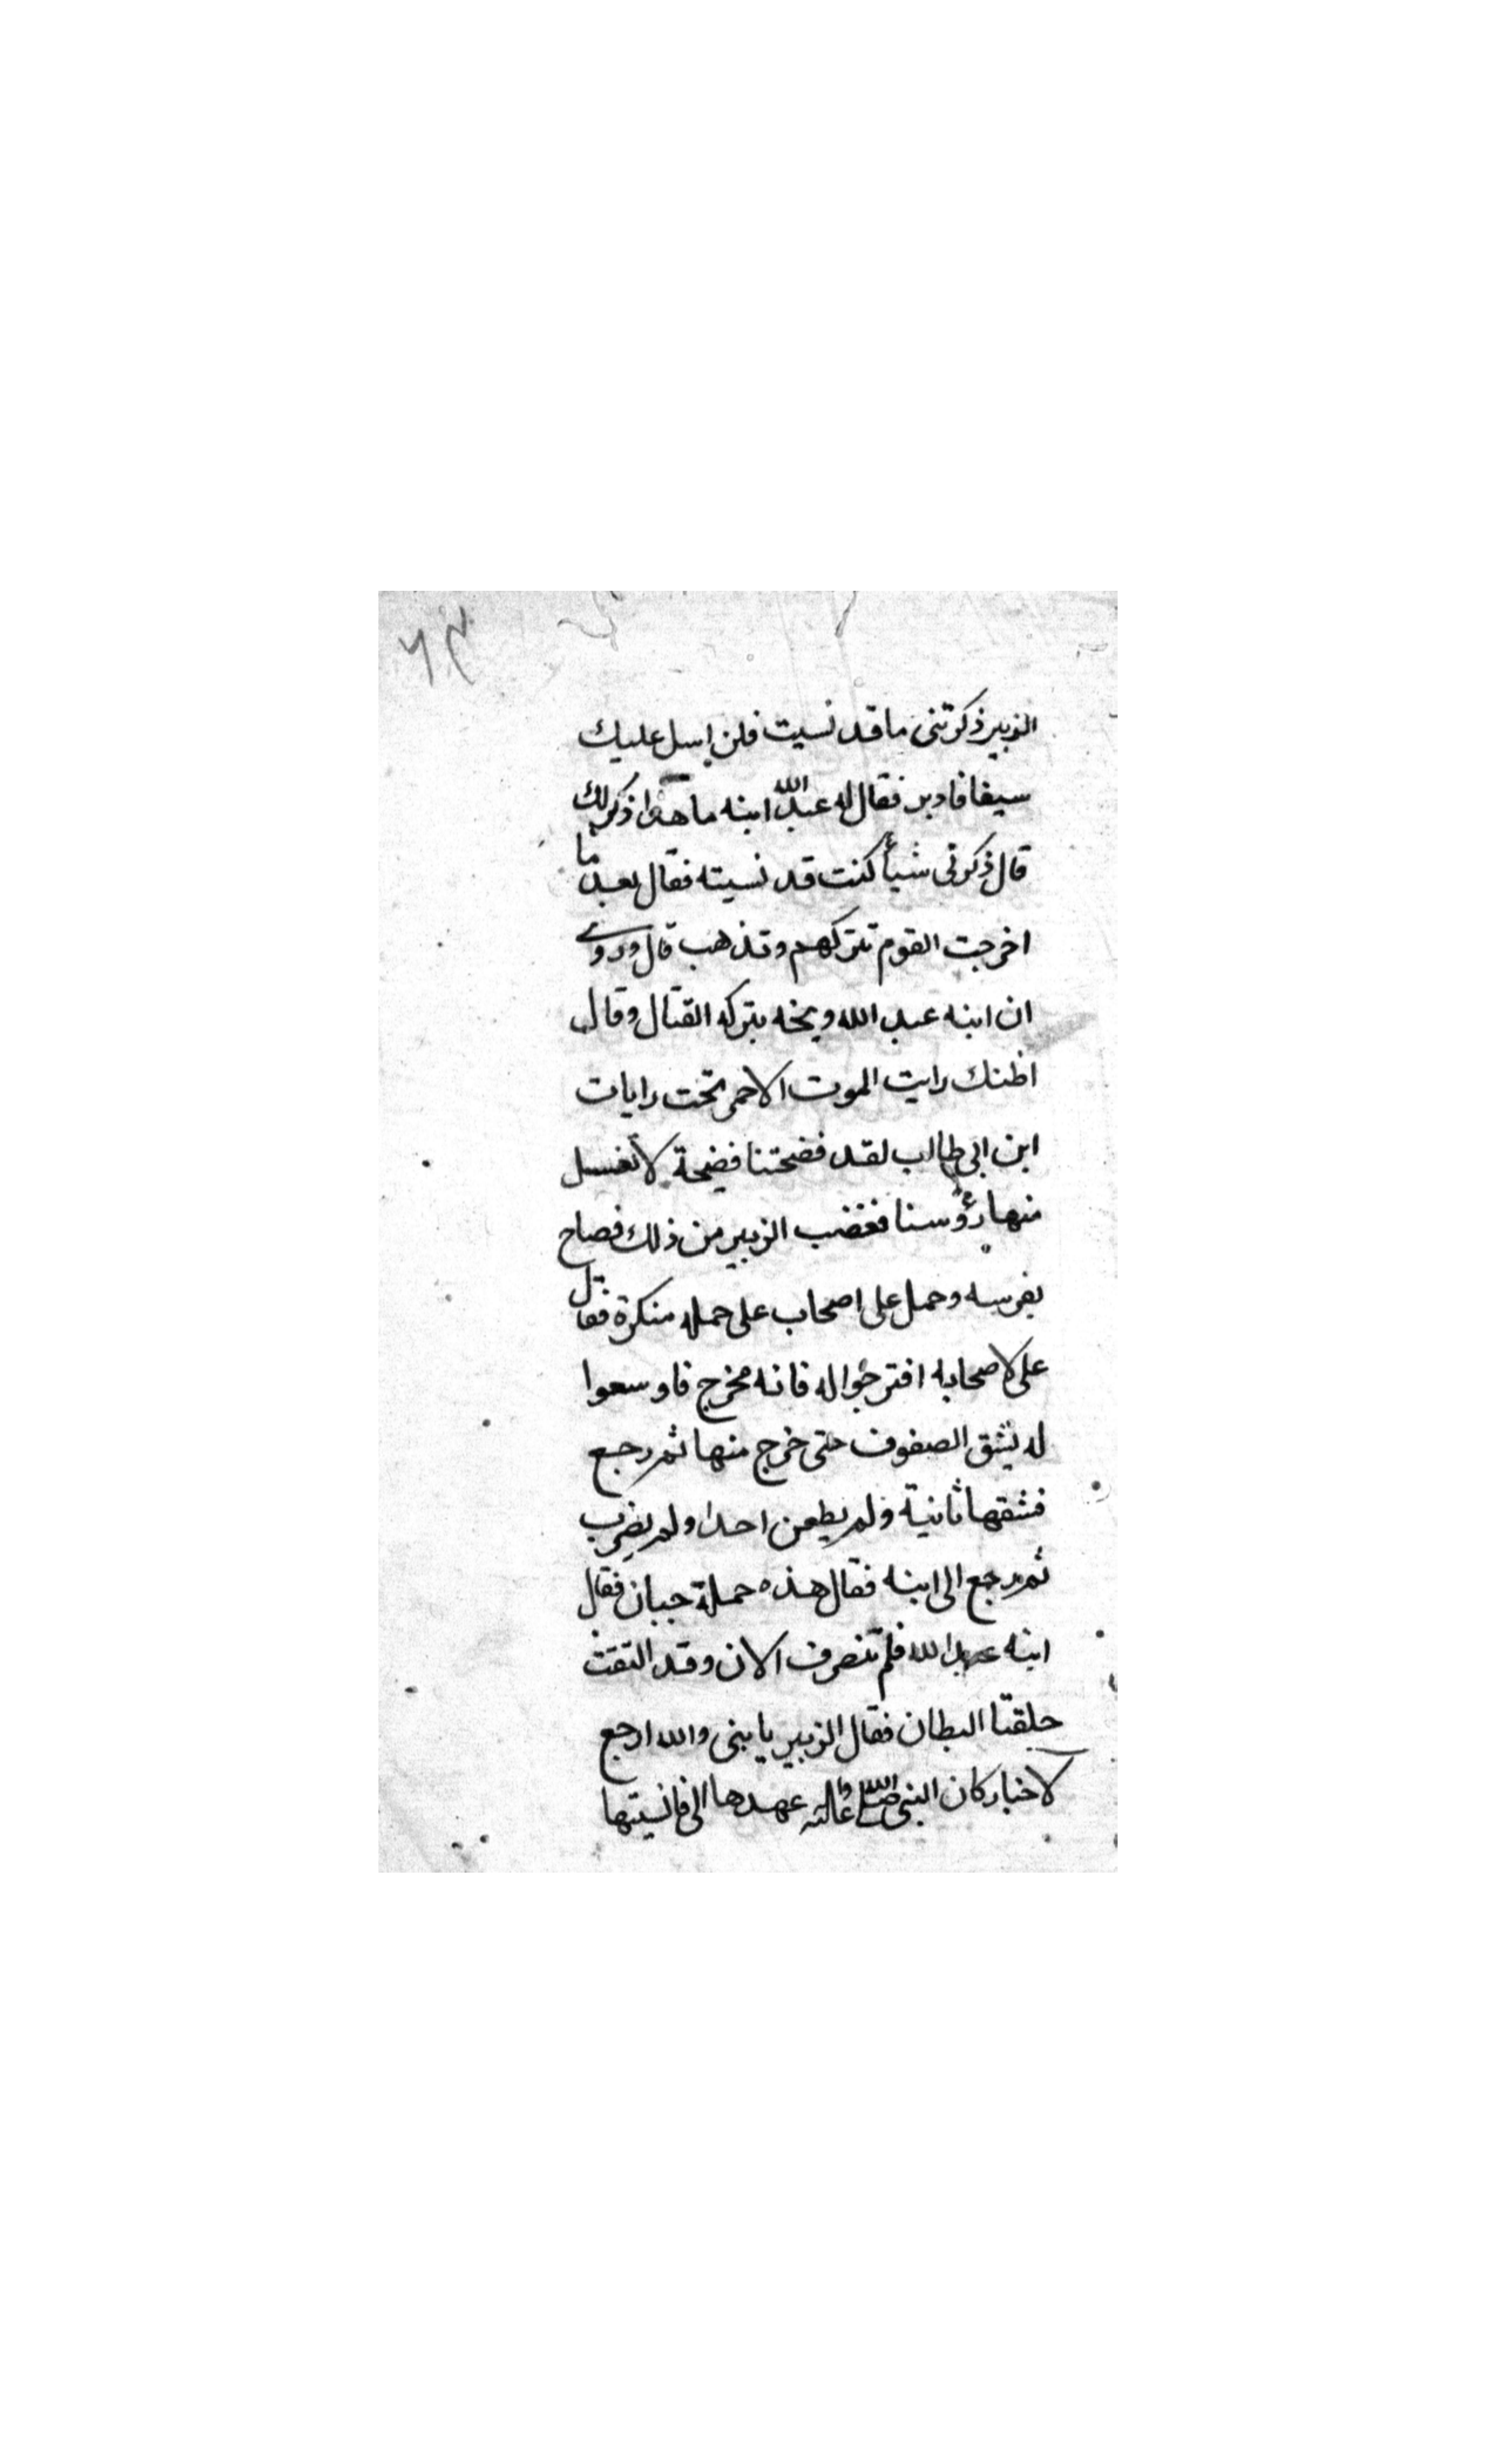 ٦٣
الزبير ذكرتنى ما قد نسيت فلن اسل عليك
سيفا فادبر فقال له عبد الله ابنه ما هذا ذكر لك
قال ذكرنى شيأ كنت قد نسيته فقال بعد ما
اخرجت القوم تتركهم وتذهب قال وروى
ان ابنه عبد الله وبخه بتركه القتال وقال
اظنك رايت الموت الاحمر تحت رايات
ابن ابى طالب لقد فضحتنا فضيحة لا تغسل
منها رؤسنا فغضب الزبير من ذلك فصاح
بفرسه وحمل على اصحاب على حمله منكرة فقال
على لاصحابه افترجوا له فانه مخرج فاوسعوا
له يشق الصفوف حتى خرج منها ثم رجع
فشقها ثانية ولم يطعن احدا ولم يضرب
ثم رجع الى ابنه فقال هذه حملة جبان فقال
ابنه عبد الله فلم تنصرف الان وقد التقت
حلقتا البطان فقال الزبير يا بنى والله ارجع
لاخبار كان النبى صلى الله عليه واله عهدها الى فانسيتها